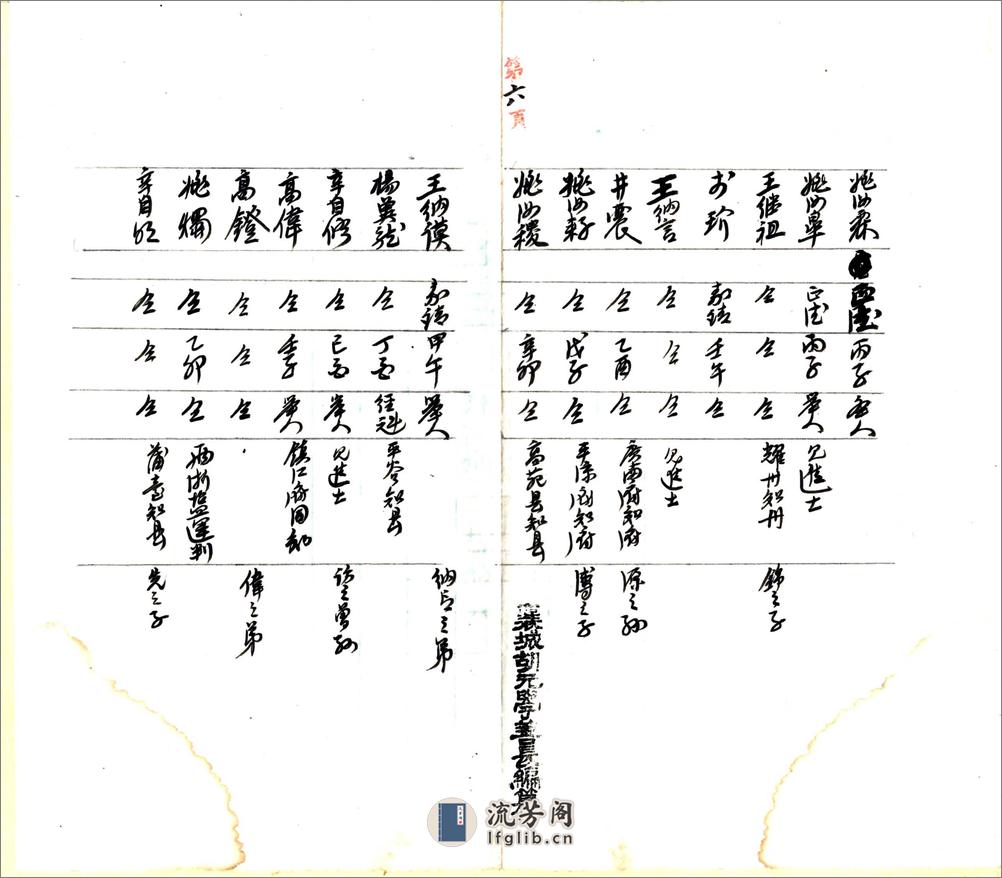 第六頁
姚汝 正德 丙子 舉人
姚汝皐 正德 丙子 舉人 見進士
王继祖 仝 仝 仝 耀州知州 錦之子
玠 嘉靖 壬午 仝
王納言 仝 仝 仝 見進士
井震 仝 乙酉 仝 府知府 源之孙
姚汝 仝 戊子 仝 平凉府知府 博之子
姚汝稷 仝 辛卯 仝 高苑县知县
襄城胡元學益長編
王納谟 嘉靖 甲午 舉人 納言之弟
楊巽 仝 丁酉 经魁 平谷知县
辛自修 仝 己酉 舉人 见進士 访之曾孙
高偉 仝 壬子 舉人 镇江府同知
高鐙 仝 仝 仝 偉之弟
姚燭 仝 乙卯 仝 两浙塩運判
辛自 仝 仝 仝 蒲臺知县 先之子
流芳阁
lfglib.cn